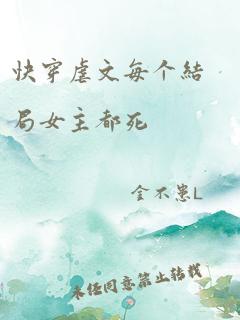 快穿虐文每个結
局女主都死
全不患L
未经同意禁止转载